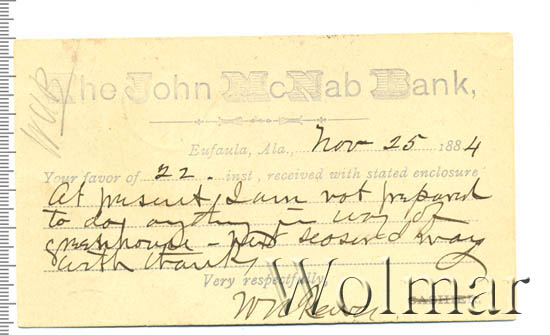 The John McNab Bank,
Eufaula, Ala., Nov 25 1884
Your favor of 22. inst, received with stated enclosure
At present, I am not prepared
to do anything in way of
greenhouse - Next season I may
with thanks,
Very respectfully,
CASHIER.
Wolmar